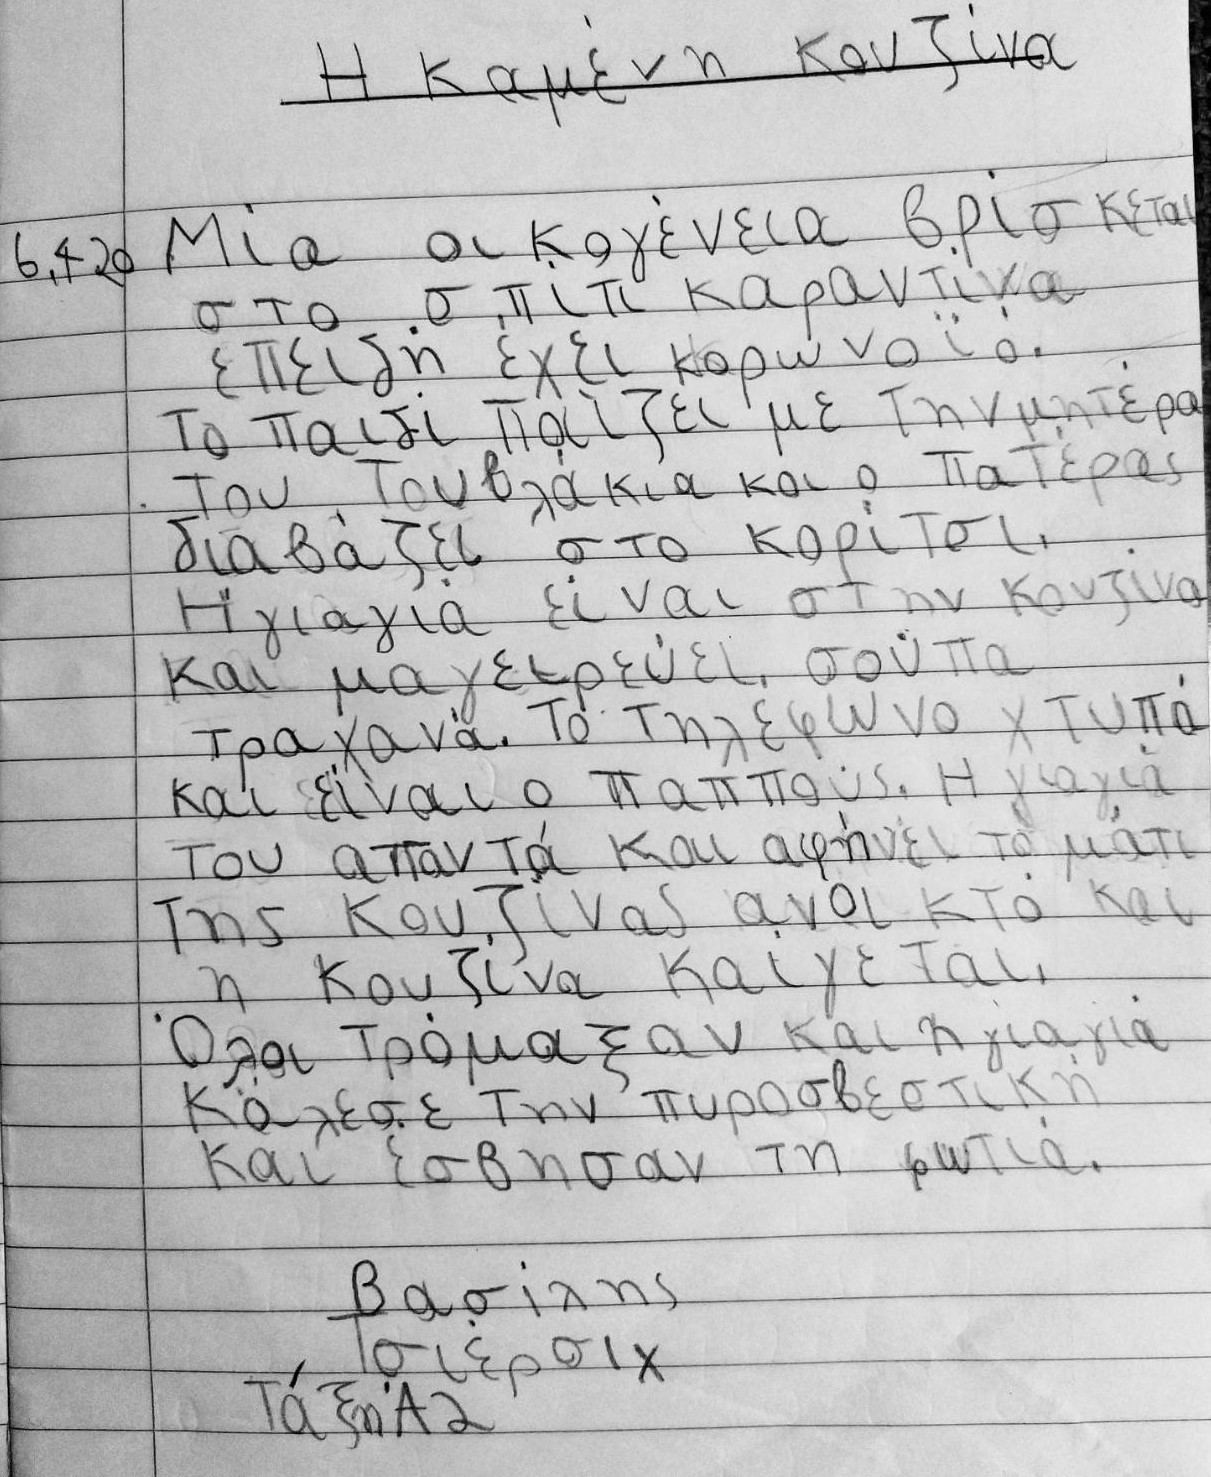 Η καμένη κουζίνα
6.4.20 Μία οικογένεια βρίσκεται
στο σπίτι καραντίνα
επειδή έχει κορωνοϊό.
Το παιδί παίζει με την μητέρα
του τουβλάκια και ο πατέρας
διαβάζει στο κορίτσι.
Η γιαγιά είναι στην κουζίνα
και μαγειρεύει σούπα
τραχανά. Το τηλέφωνο χτυπά
και είναι ο παππούς. Η γιαγιά
του απαντά και αφήνει το μάτι
της κουζίνας ανοικτό και
η κουζίνα καίγεται.
Όλοι τρόμαξαν και η γιαγιά
κάλεσε την πυροσβεστική
και έσβησαν τη φωτιά.
Βασίλης
Τσιέρσιχ
Τάξη Α2